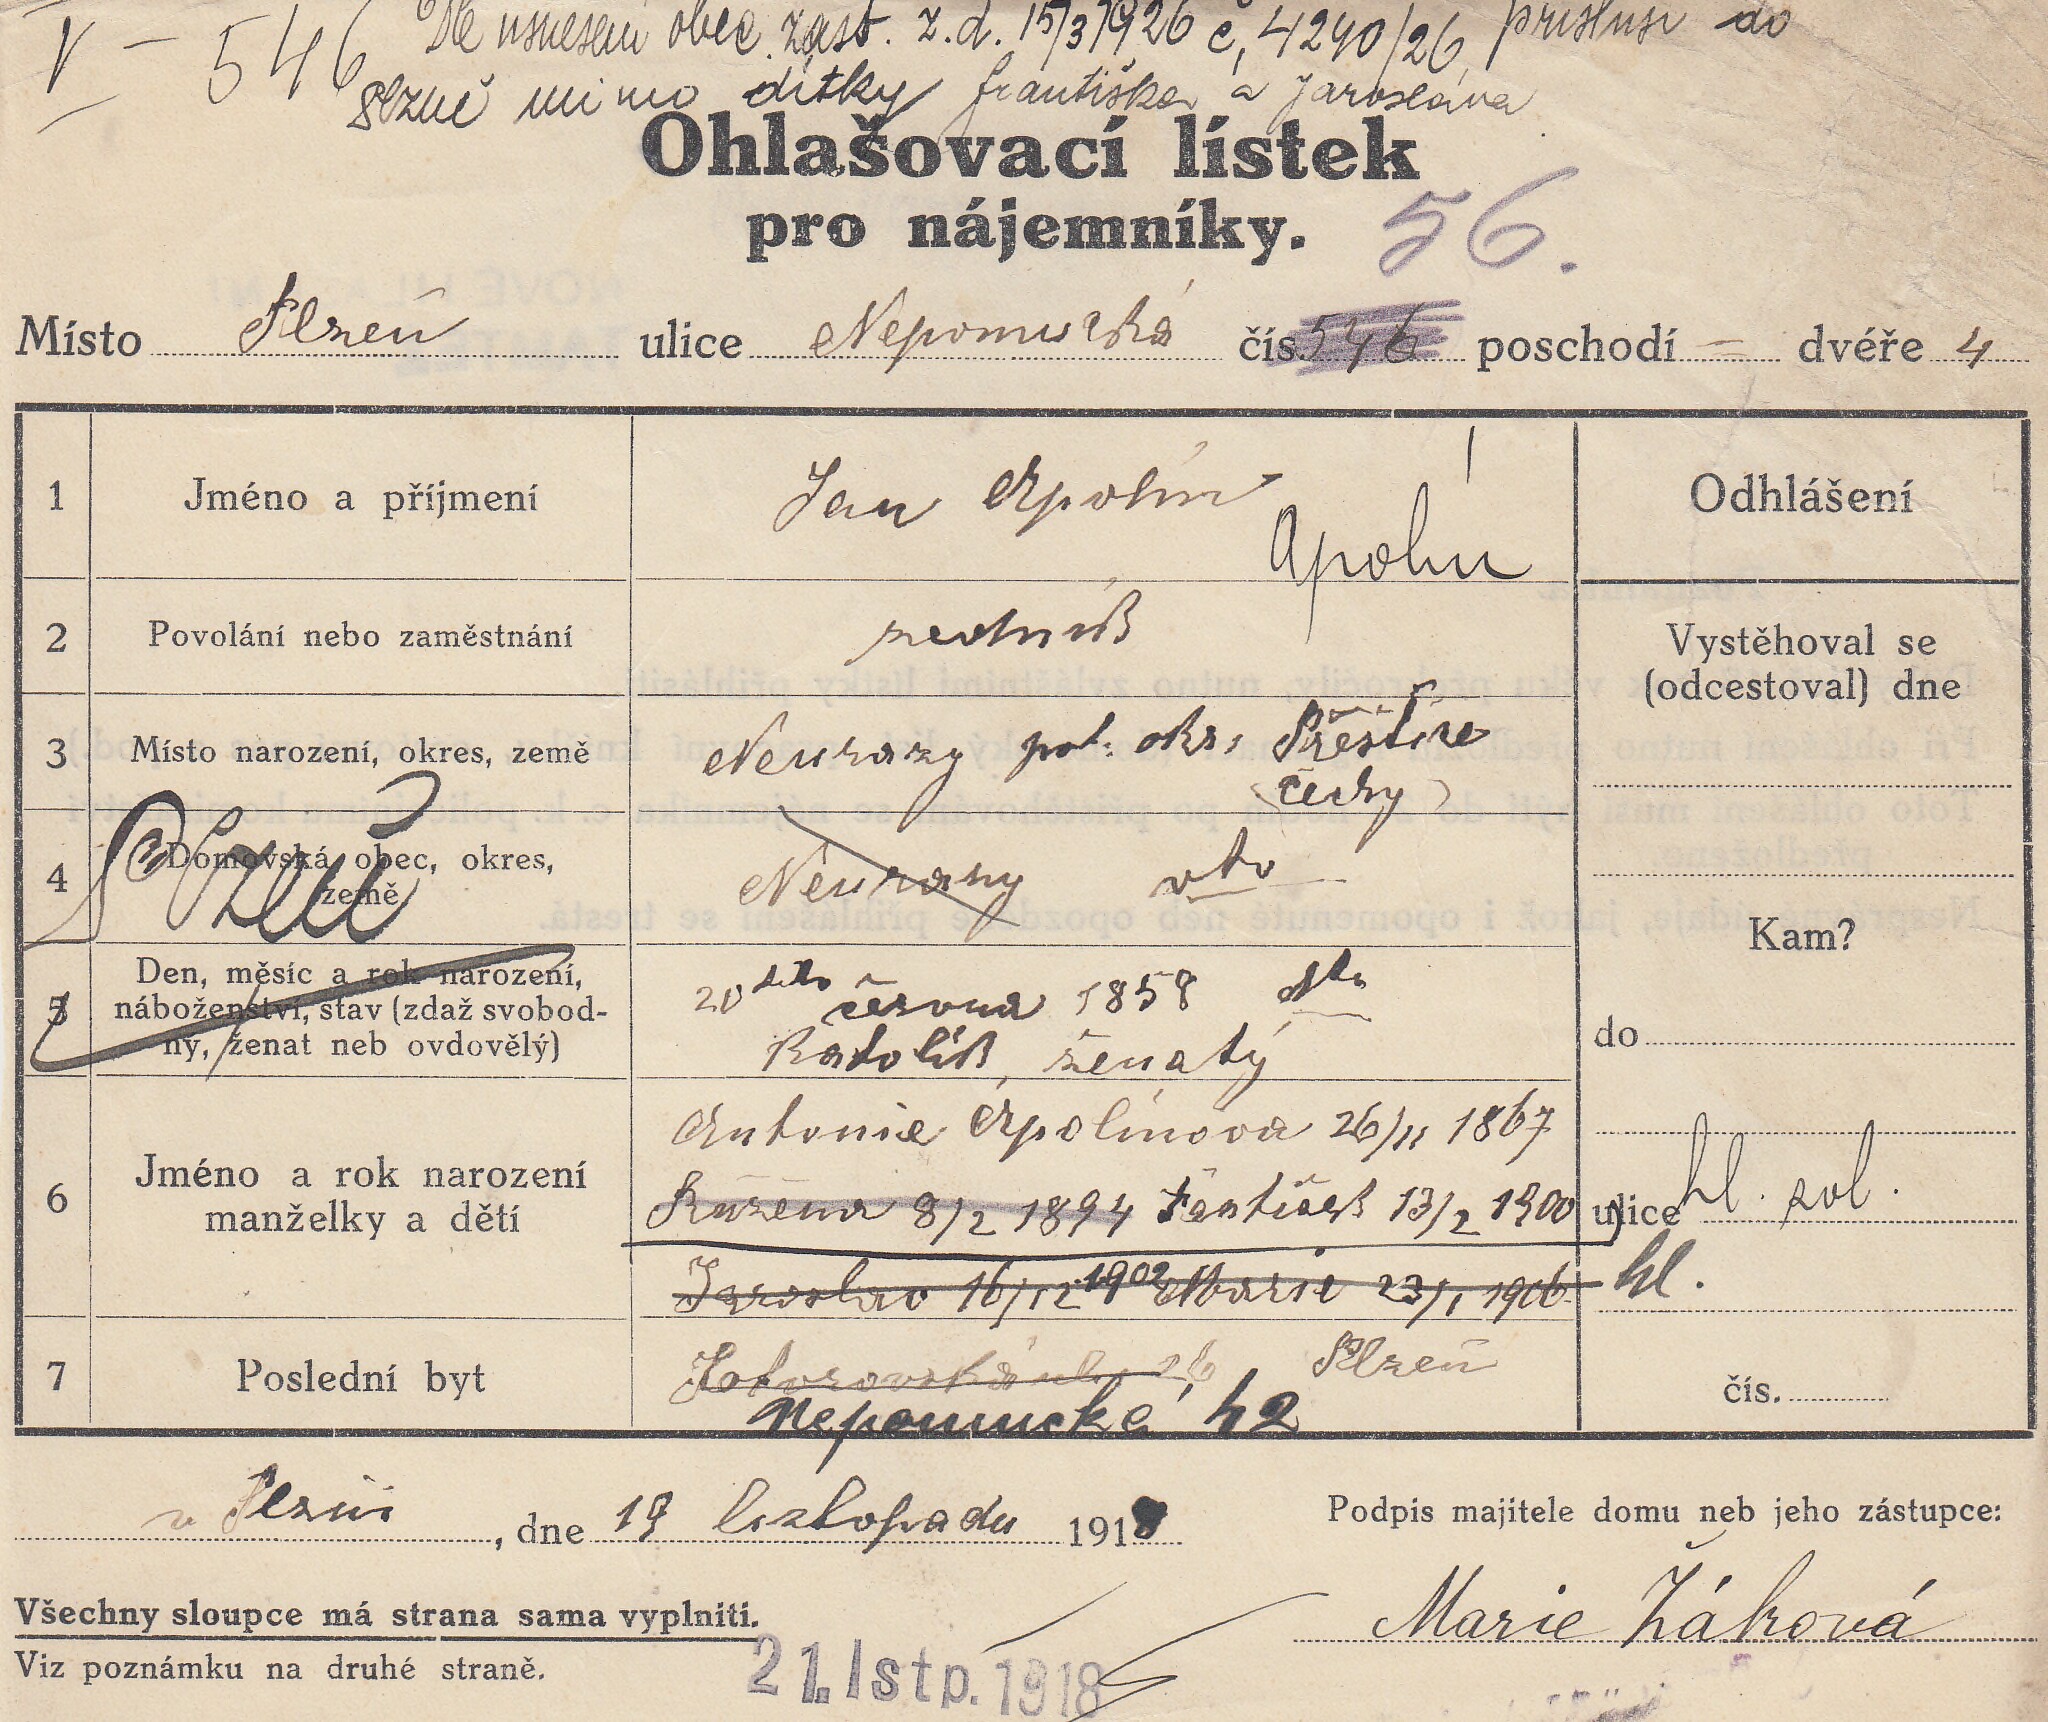 V – 546 Dle usnesení obec. zast. z. d. 15/3 1926 č. 4290/26 přísluší do
Plzně mimo dítky Františka a Jaroslava
Ohlašovací lístek
pro nájemníky.
56.
Místo Plzeň ulice Nepomucká čís. 546 poschodí – dvéře 4
1 Jméno a příjmení Jan Apolín Apolín Odhlášení
2 Povolání nebo zaměstnání zedník Vystěhoval se (odcestoval) dne
3 Místo narození, okres, země Neurazy pol. okr. Přeštice
(Čechy)
4 Domovská obec, okres, země Neurazy dto
Plzeň
Kam?
5 Den, měsíc a rok narození, náboženství, stav (zdaž svobodný, ženat neb ovdovělý) 20 června 1858
katolík, ženatý
do
6 Jméno a rok narození manželky a dětí Antonie Apolínova 26/11 1867
Růžena 8/2 1894 František 13/2 1900 ulice hl. zol.
Jaroslav 16/12 1902 Marie 23/1 1906 hl.
7 Poslední byt 26 Plzeň čís.
Nepomucká 42
v Plzni, dne 19 listopadu 1918
Podpis majitele domu neb jeho zástupce:
Marie Žáková
Všechny sloupce má strana sama vyplniti.
Viz poznámku na druhé straně.
21. lstp. 1918